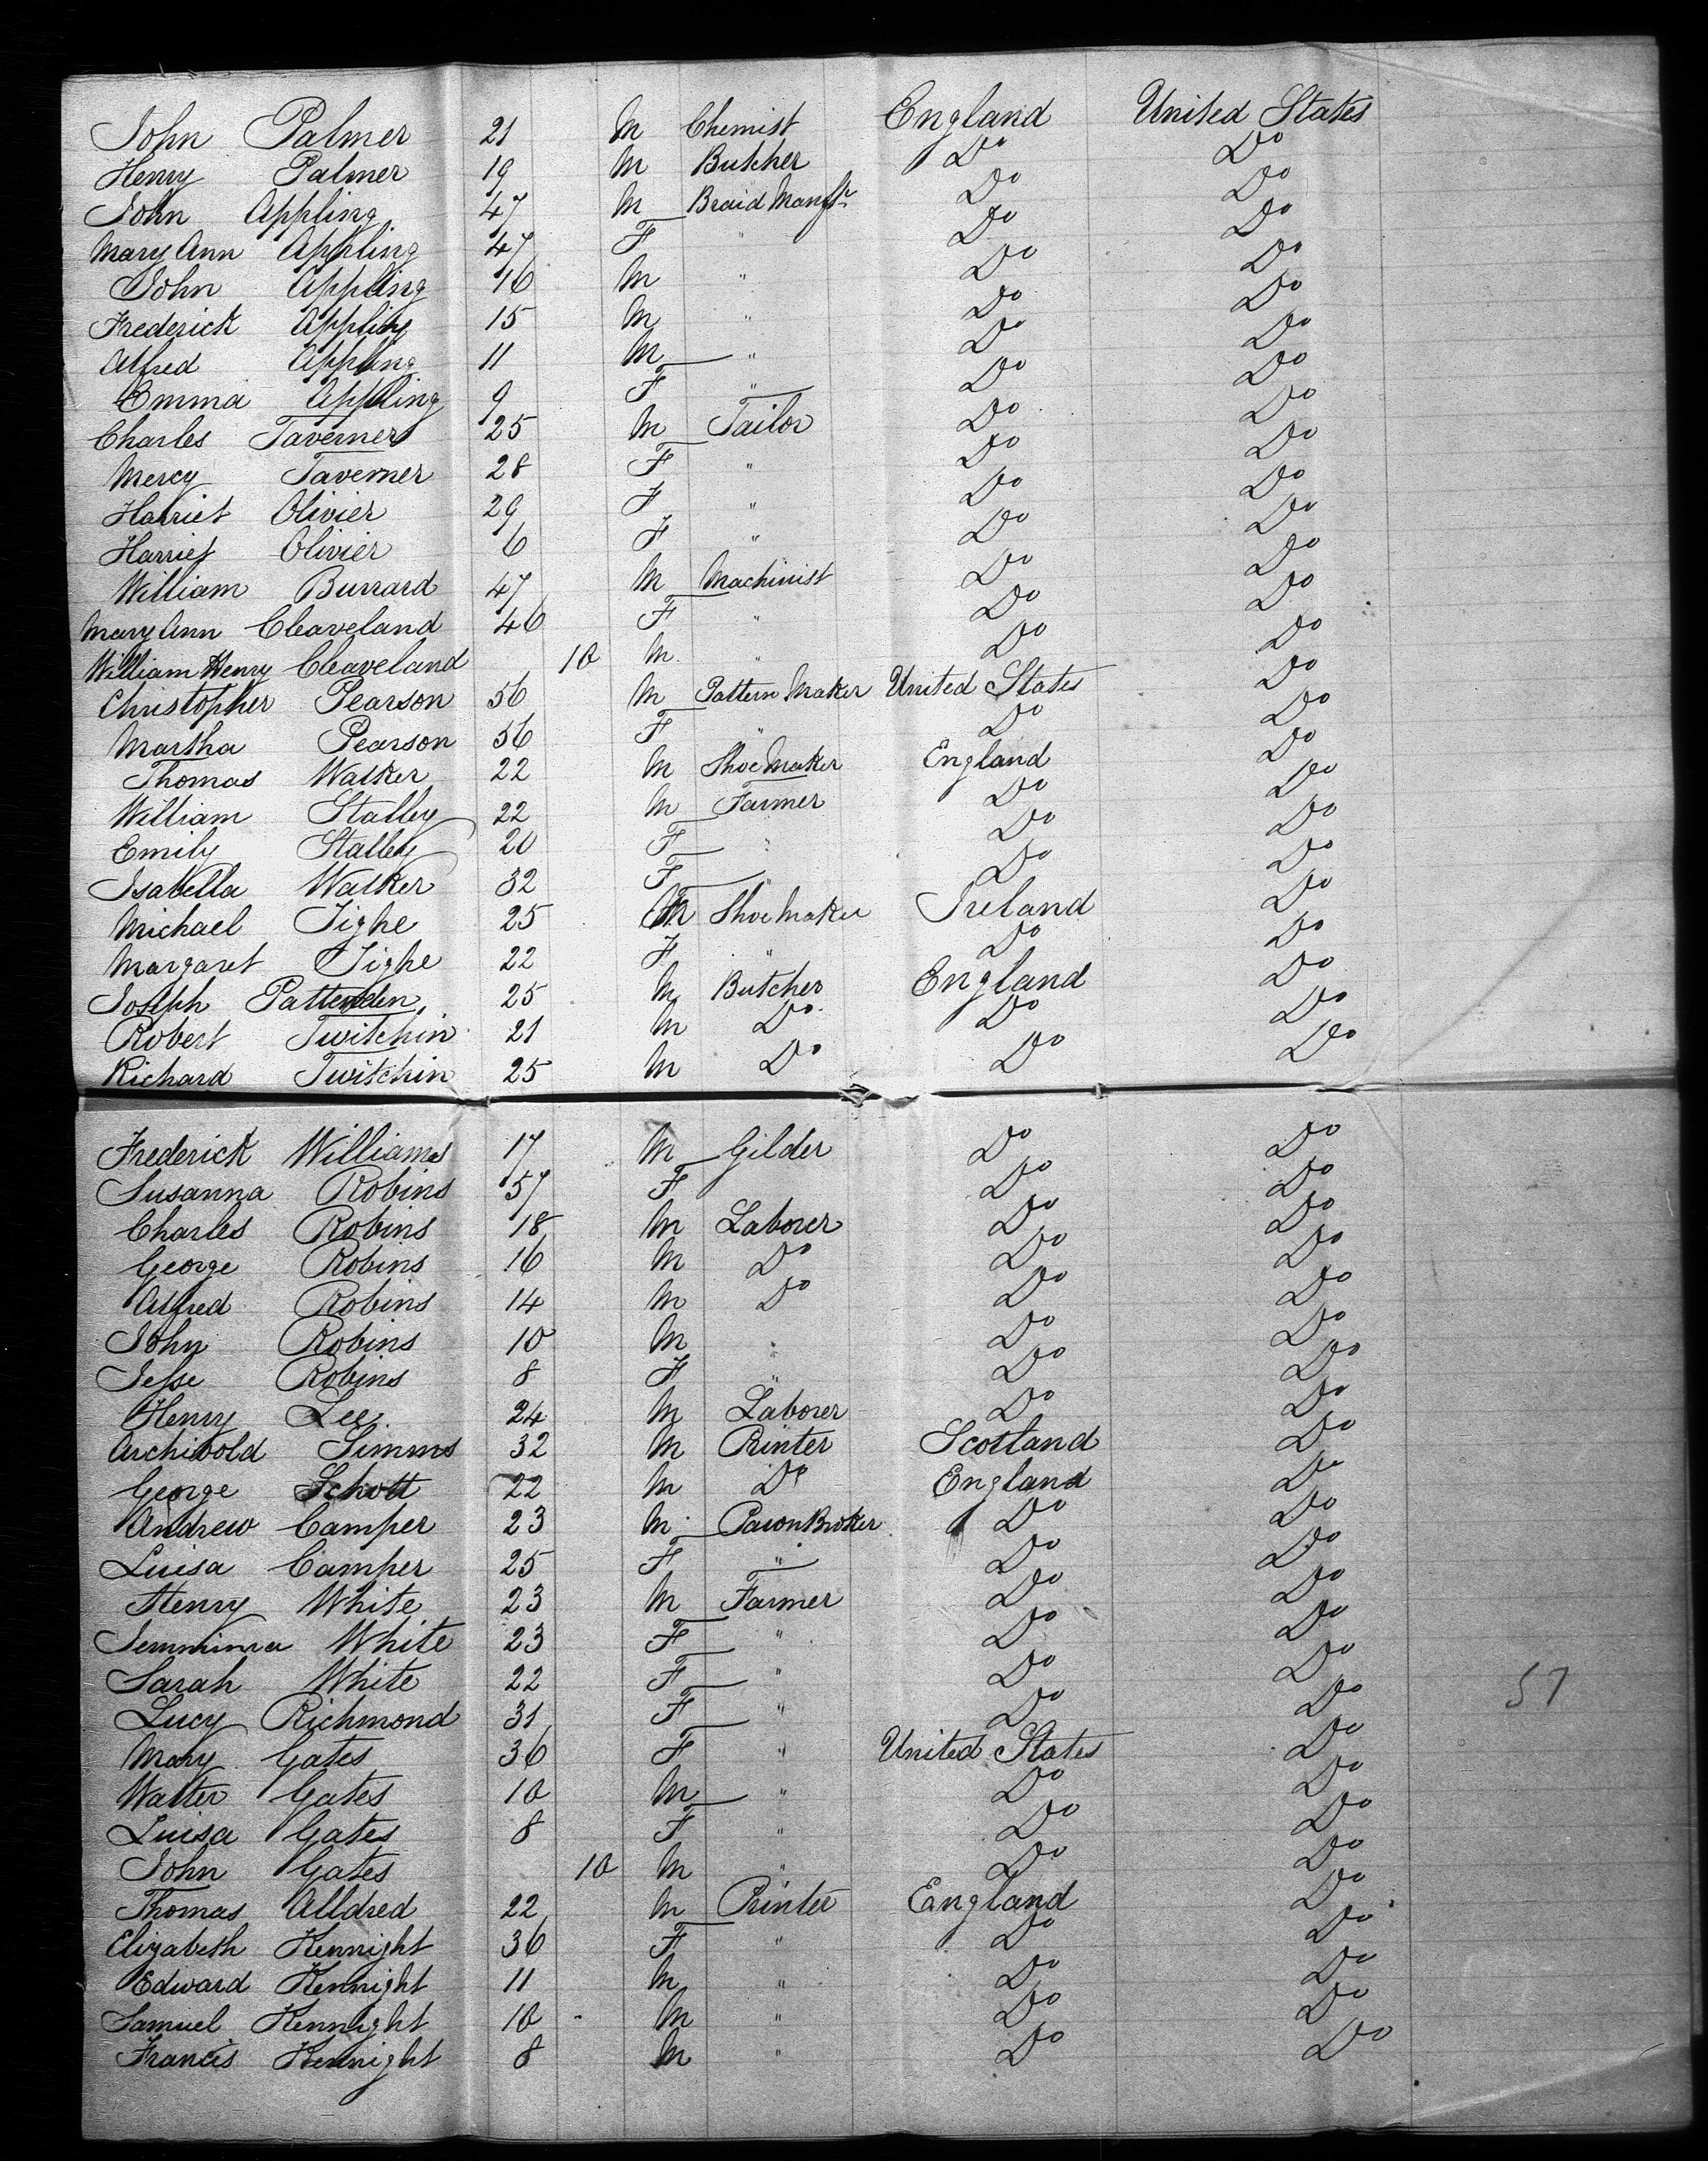 John Palmer 21 M Chemist England United States
Henry Palmer 19 M Butcher Do Do
John Appling 47 M Braid Manftr Do Do
Mary Ann Appling 47 F " Do Do
John Appling 16 M " Do Do
Frederick Appling 15 M " Do Do
Alfred Appling 11 M " Do Do
Emma Appling 9 F " Do Do
Charles Taverner 25 M Tailor Do Do
Mercy Taverner 28 F " Do Do
Harriet Olivier 29 F " Do Do
Harriet Olivier 6 F " Do Do
William Burrard 47 M Machinist Do Do
Mary Ann Cleaveland 46 F " Do Do
William Henry Cleaveland 10 M " Do Do
Christopher Pearson 56 M Pattern Maker United States Do
Martha Pearson 56 F " Do Do
Thomas Walker 22 M Shoe Maker England Do
William Stalley 22 M Farmer Do Do
Emily Stalley 20 F " Do Do
Isabella Walker 32 F " Do Do
Michael Tighe 25 M Shoe Maker Ireland Do
Margaret Tighe 22 F " Do Do
Joseph Pattenden 25 M Butcher England Do
Robert Twitchin 21 M Do Do Do
Richard Twitchin 25 M Do Do Do
Frederick Williams 17 M Gilder Do Do
Susanna Robins 57 F Do Do
Charles Robins 18 M Laborer Do Do
George Robins 16 M Do Do Do
Alfred Robins 14 M Do Do Do
John Robins 10 M " Do Do
Jesse Robins 8 F " Do Do
Henry Lee 24 M Laborer Do Do
Archibold Simms 32 M Printer Scotland Do
George Schott 22 M Do England Do
Andrew Camper 23 M Pawn Broker Do Do
Luisa Camper 25 F " Do Do
Henry White 23 M Farmer Do Do
Jemmima White 23 F " Do Do
Sarah White 22 F " Do Do
Lucy Richmond 31 F " Do Do
Mary Gates 36 F " United States Do
Walter Gates 10 M " Do Do
Luisa Gates 8 F " Do Do
John Gates 10 M " Do Do
Thomas Alldred 22 M Printer England Do
Elizabeth Kennight 36 F " Do Do
Edward Kennight 11 M " Do Do
Samuel Kennight 10 M " Do Do
Francis Kennight 8 M " Do Do
57